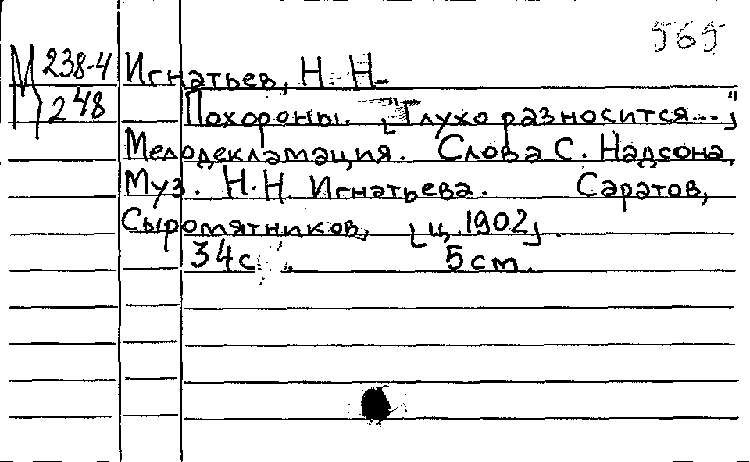 565
М 238-4
248
Игнатьев, Н. Н.
Похороны. ["Глухо разносится..."]
Мелодекламация. Слова С. Надсона,
Муз. Н.Н. Игнатьева. Саратов,
Сыромятников, [ц. 1902].
34с. 5 ст.